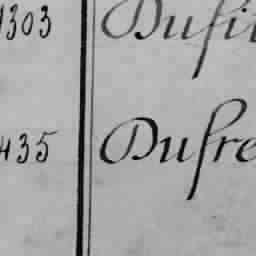 1303 Dufi
435 Dufre